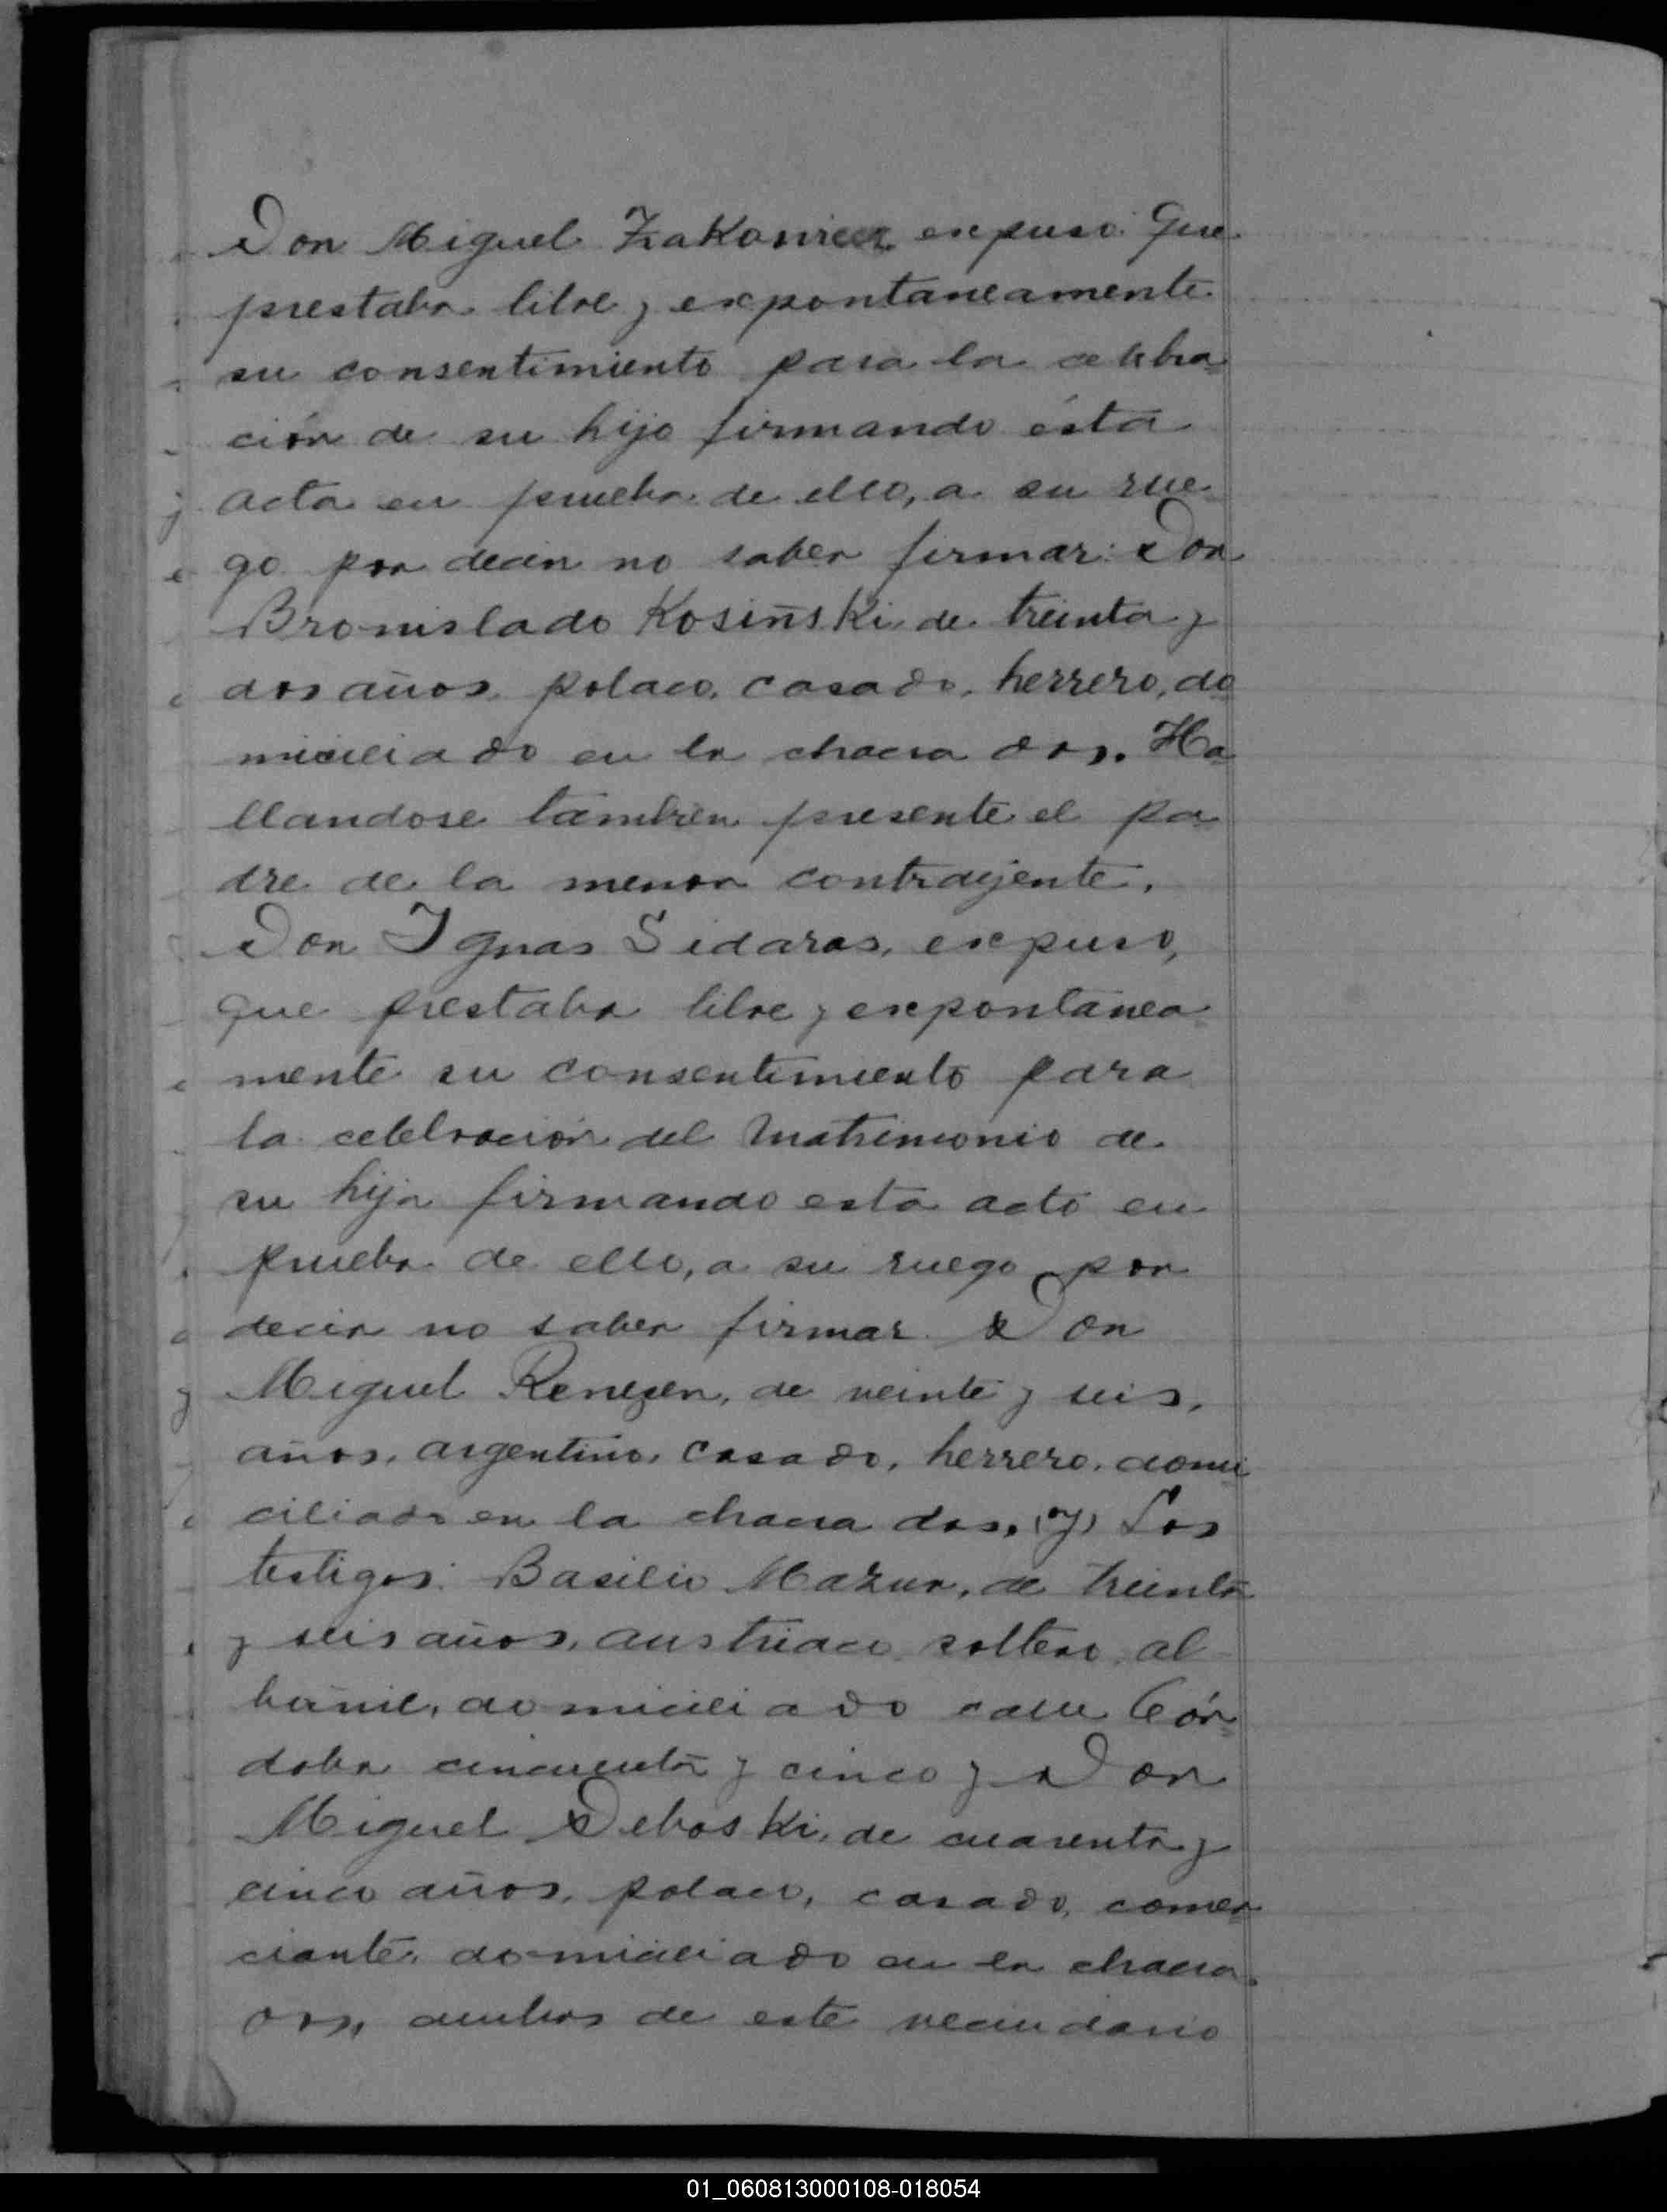 Don Miguel Zrakoniecz expuso: Que
prestaba libre y expontaneamente
su consentimiento para la celebra-
ción de su hijo firmando ésta
acta en prueba de ello, a su rue-
go por decir no saber firmar: Don
Bronislado Kosiñski de treinta y
dos años, polaco, casado, herrero, do-
miciliado en la chacra dos. Ha-
llandose tambien presente el pa-
dre de la menor contrayente,
Don Ignas Sidaras, expuso,
que prestaba libre y expontanea-
mente su consentimiento para
la celebración del matrimonio de
su hija firmando esta acto en
prueba de ello, a su ruego por
decir no saber firmar Don
Miguel, de veinte y seis,
años, argentino, casado, herrero, domi-
ciliado en la chacra dos, (y) Los
testigos: Basilio Mazur, de treinta
y seis años, austriaco, soltero, al-
bañil, domiciliado calle Cór-
doba cincuenta y cinco y Don
Miguel Deboski, de cuarenta y
cinco años, polaco, casado, comer-
ciante, domiciliado en la chacra
dos, ambos de este vecindario
01_060813000108-018054